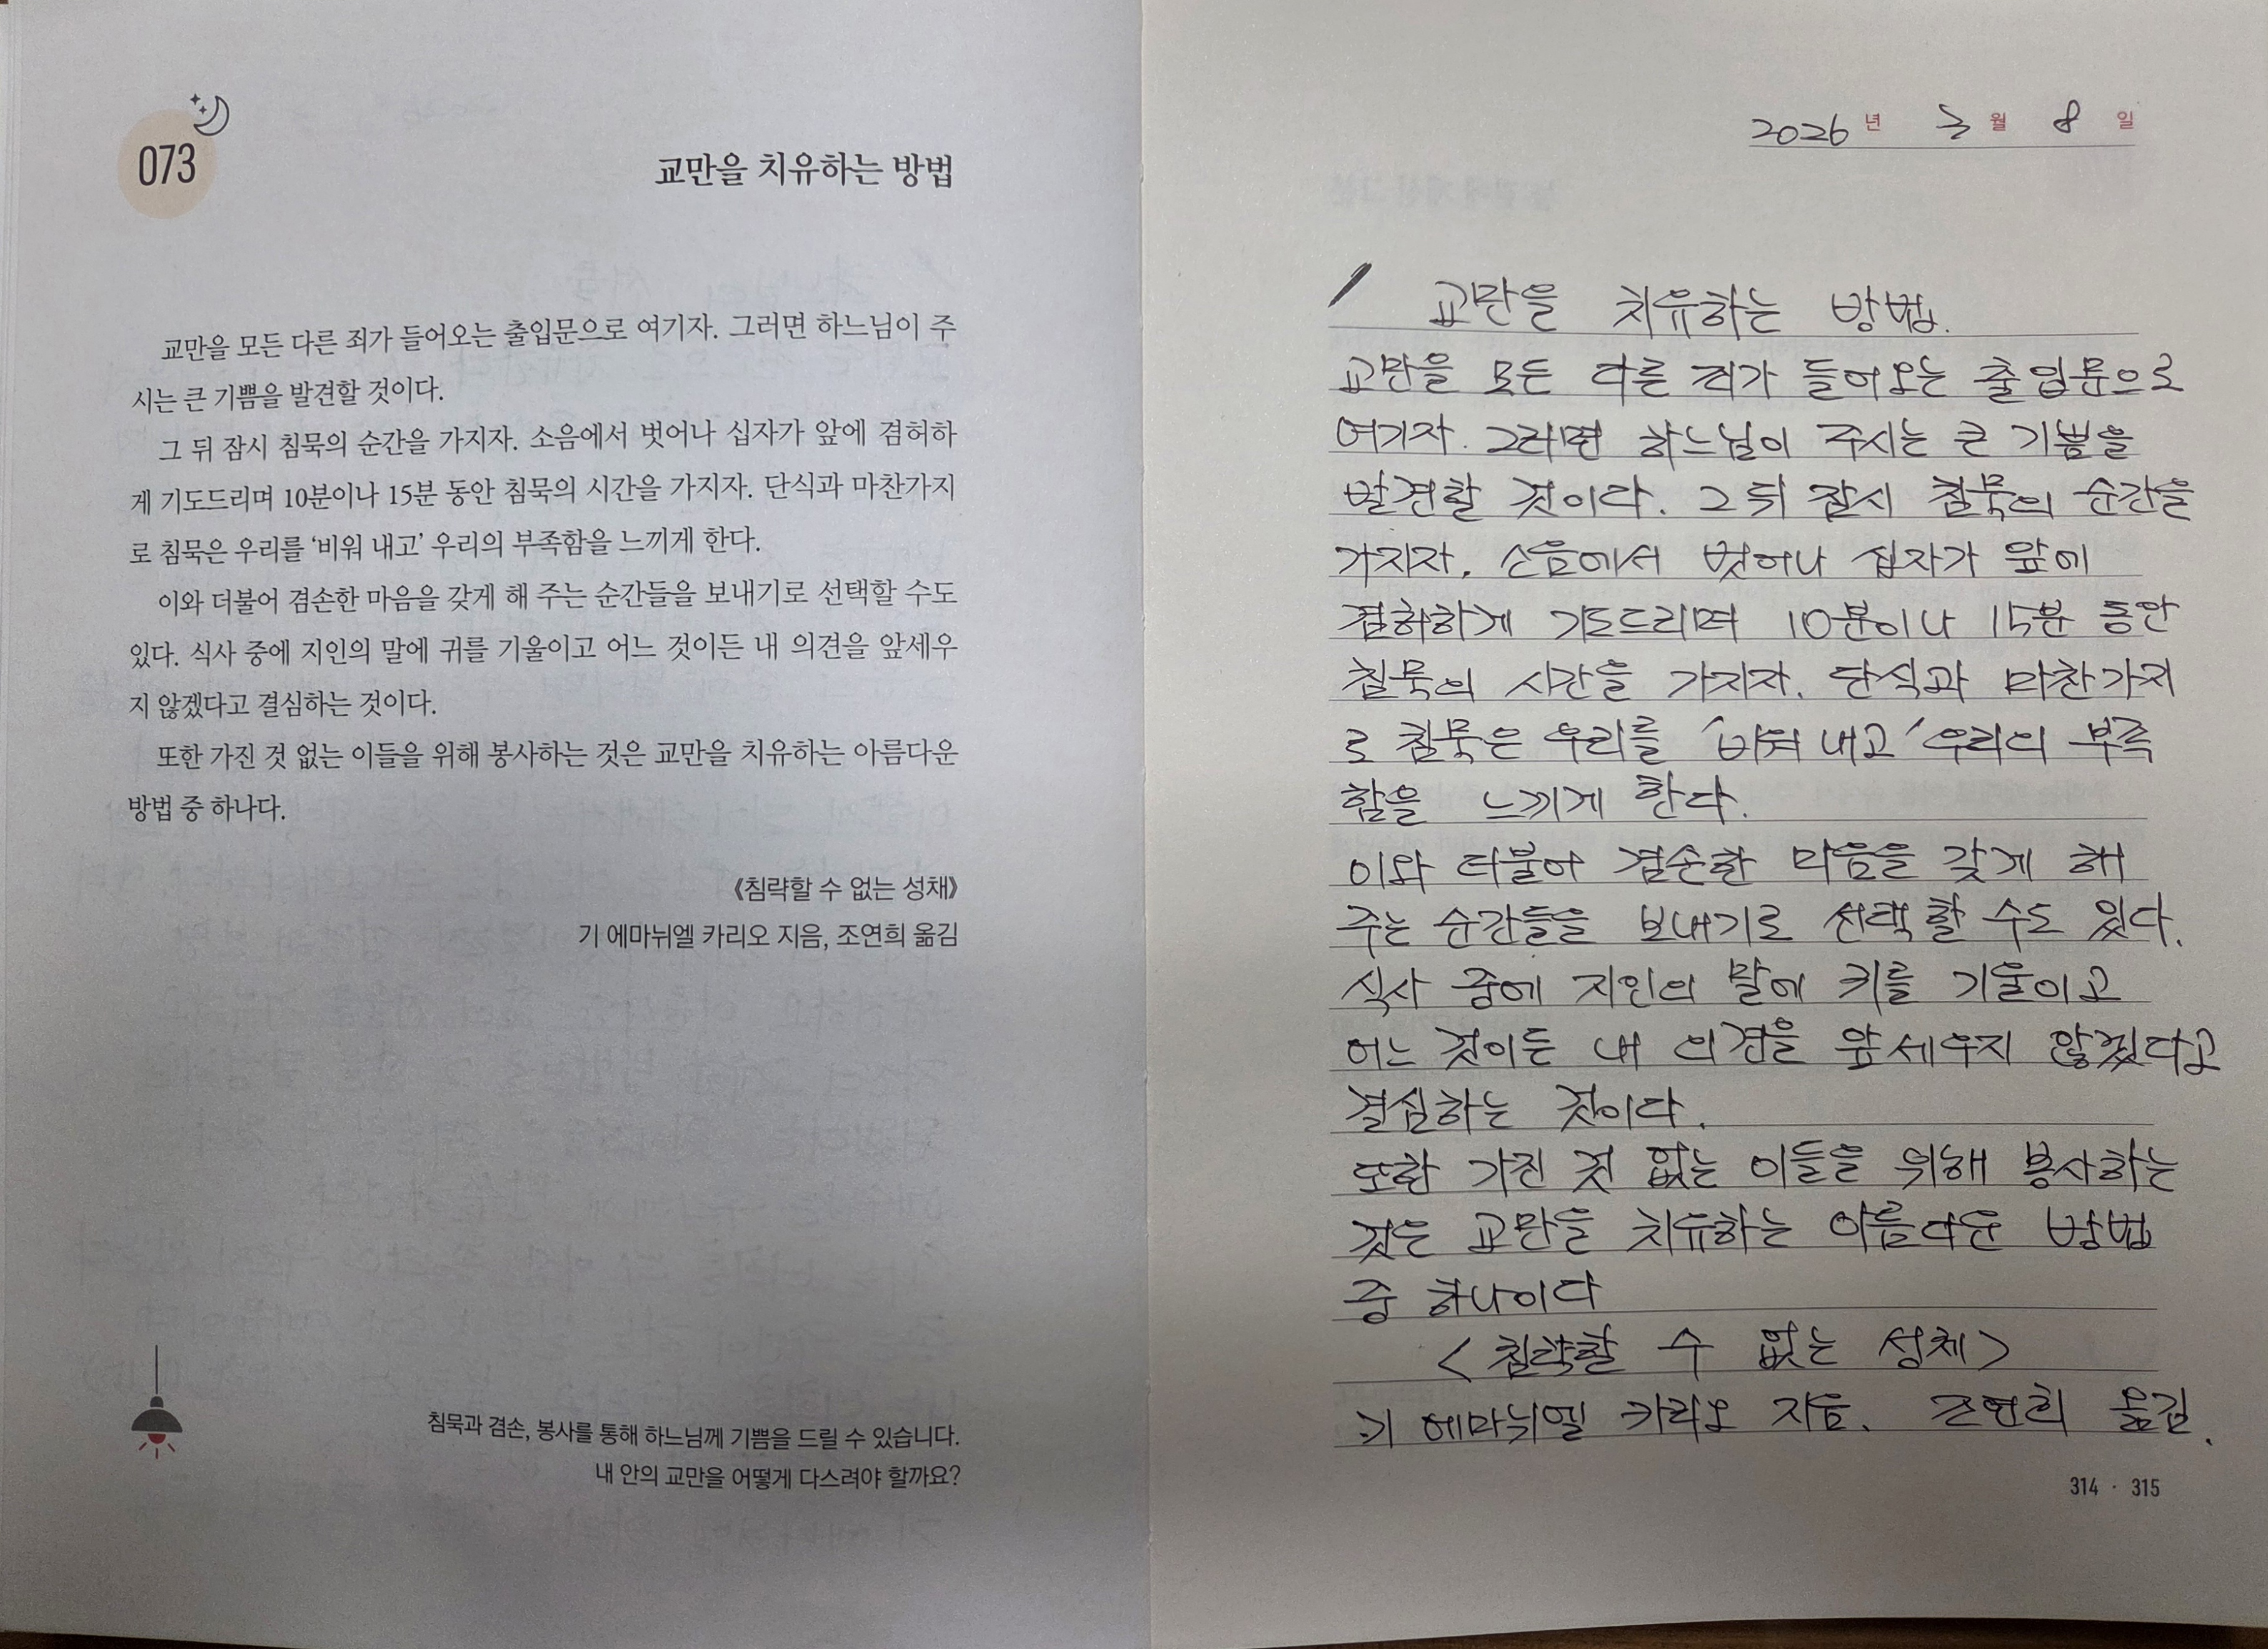 073
교만을 치유하는 방법
교만을 모든 다른 죄가 들어오는 출입문으로 여기자. 그러면 하느님이 주
시는 큰 기쁨을 발견할 것이다.
그 뒤 잠시 침묵의 순간을 가지자. 소음에서 벗어나 십자가 앞에 겸허하
게 기도드리며 10분이나 15분 동안 침묵의 시간을 가지자. 단식과 마찬가지
로 침묵은 우리를 ‘비워 내고’ 우리의 부족함을 느끼게 한다.
이와 더불어 겸손한 마음을 갖게 해 주는 순간들을 보내기로 선택할 수도
있다. 식사 중에 지인의 말에 귀를 기울이고 어느 것이든 내 의견을 앞세우
지 않겠다고 결심하는 것이다.
또한 가진 것 없는 이들을 위해 봉사하는 것은 교만을 치유하는 아름다운
방법 중 하나다.
《침략할 수 없는 성채》
기 에마뉘엘 카리오 지음, 조연희 옮김
침묵과 겸손, 봉사를 통해 하느님께 기쁨을 드릴 수 있습니다.
내 안의 교만을 어떻게 다스려야 할까요?
2026 년 3 월 8 일
교만을 치유하는 방법.
교만을 모든 다른 죄가 들어오는 출입문으로
여기자. 그러면 하느님이 주시는 큰 기쁨을
발견할 것이다. 그 뒤 잠시 침묵의 순간을
가지자. 소음에서 벗어나 십자가 앞에
겸허하게 기도드리며 10분이나 15분 동안
침묵의 시간을 가지자. 단식과 마찬가지
로 침묵은 우리를 '비워 내고' 우리의 부족
함을 느끼게 한다.
이와 더불어 겸손한 마음을 갖게 해
주는 순간들을 보내기로 선택할 수도 있다.
식사 중에 지인의 말에 귀를 기울이고
어느 것이든 내 의견을 앞세우지 않겠다고
결심하는 것이다.
또한 가진 것 없는 이들을 위해 봉사하는
것은 교만을 치유하는 아름다운 방법
중 하나이다
<침략할 수 없는 성채>
기 에마뉘엘 카리오 지음. 조연희 옮김.
314 · 315